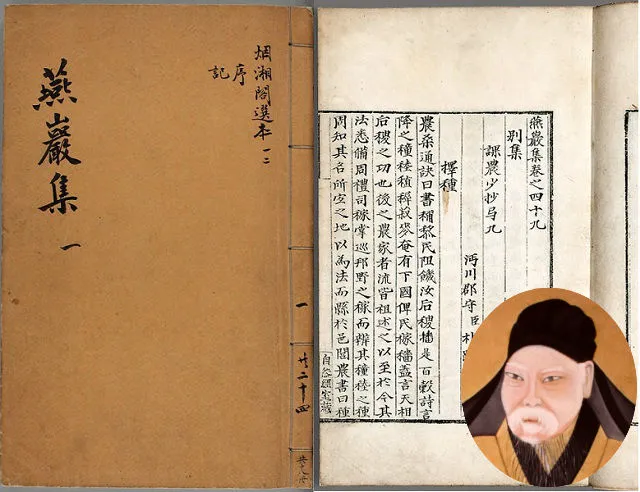 燕巖集 一
烟湘閣選本 一二
序
記
一
燕巖集卷之四十九
別集
課農少抄
沔川郡守臣
擇種
農桑通訣曰書稱黎民阻饑汝后稷播是百穀詩言
降之穜稑稙穉菽麥奄有下國俾民稼穡蓋言天相
后稷之功也後之農家者流皆祖述之以至於今其
法悉備周禮司稼掌巡邦野之稼而辨其穜稑之種
周知其名所宜之地以為法而縣於邑閭農書曰種
自然經室藏